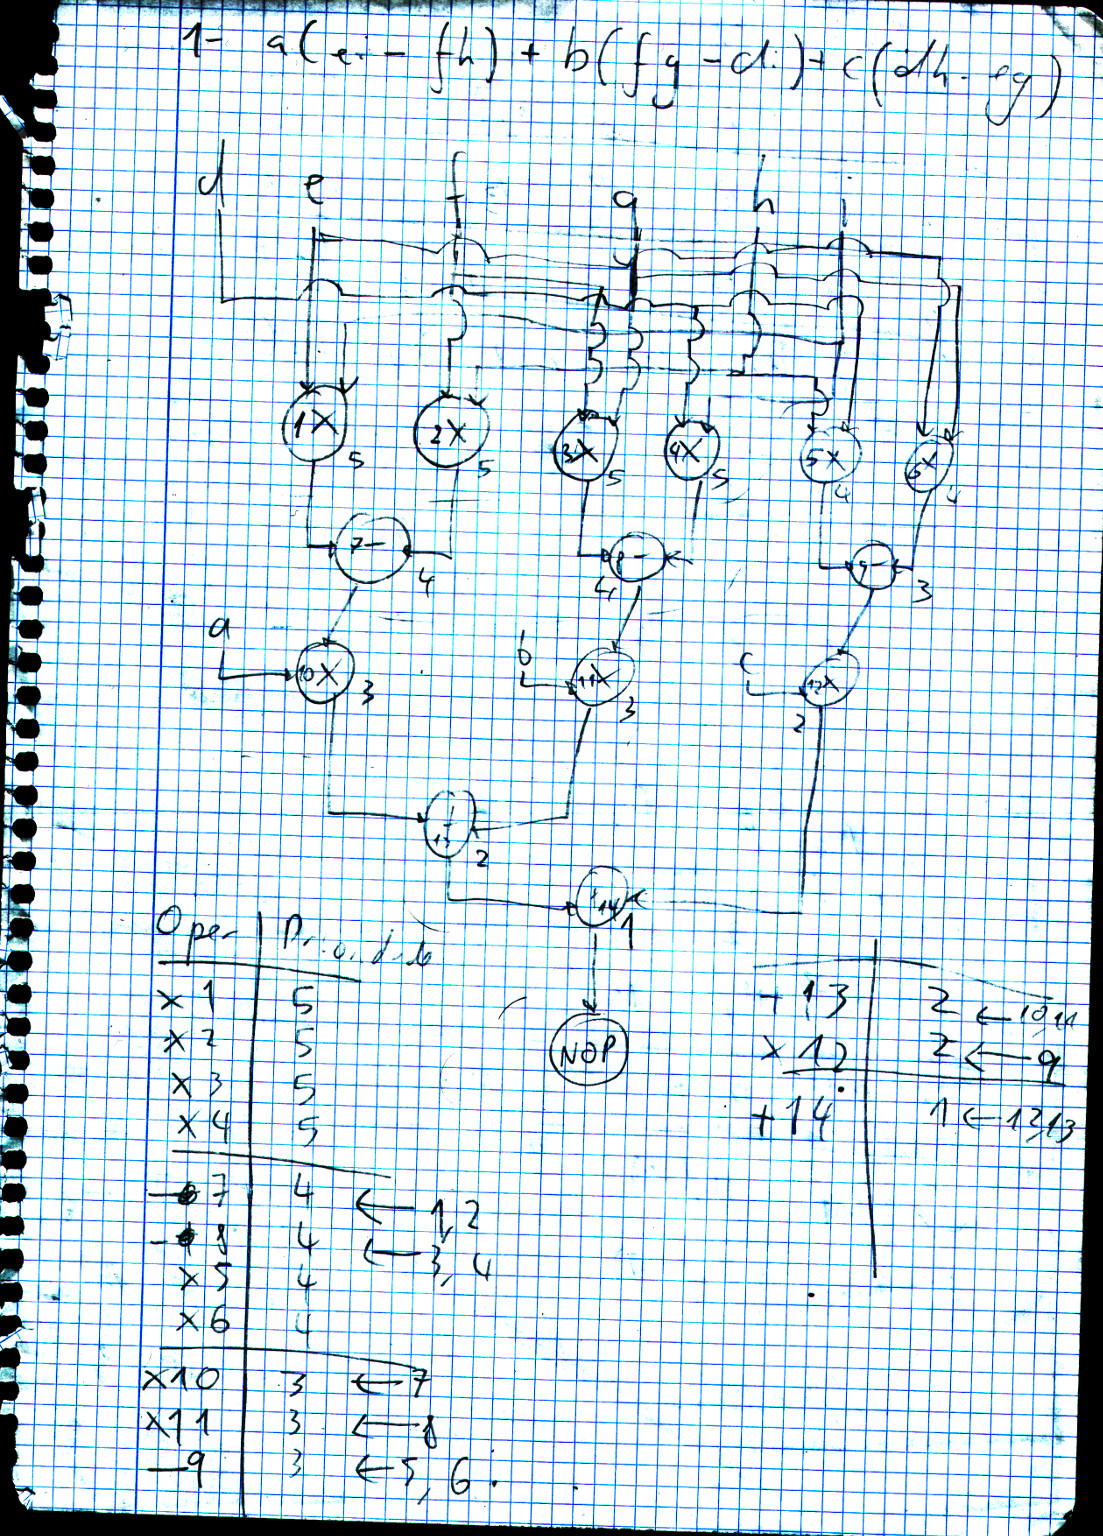 1- a(ei - fh) + b(fg - di) + c(dh - eg)
d e f g h i
1X 5 2X 5 3X 5 4X 5 5X 4 6X 4
7- 4 8- 4 9- 3
a 10X 3 b 11X 3 c 12X 2
+ 13 2
+14 1
NOP
Oper Prioridade
x 1 5
x 2 5
x 3 5
x 4 5
- 7 4 ← 1, 2
- 8 4 ← 3, 4
x 5 4
x 6 4
x10 3 ← 7
x11 3 ← 8
-9 3 ← 5, 6
+ 13 2 ← 10,11
x 12 2 ← 9
+14 1 ← 12,13